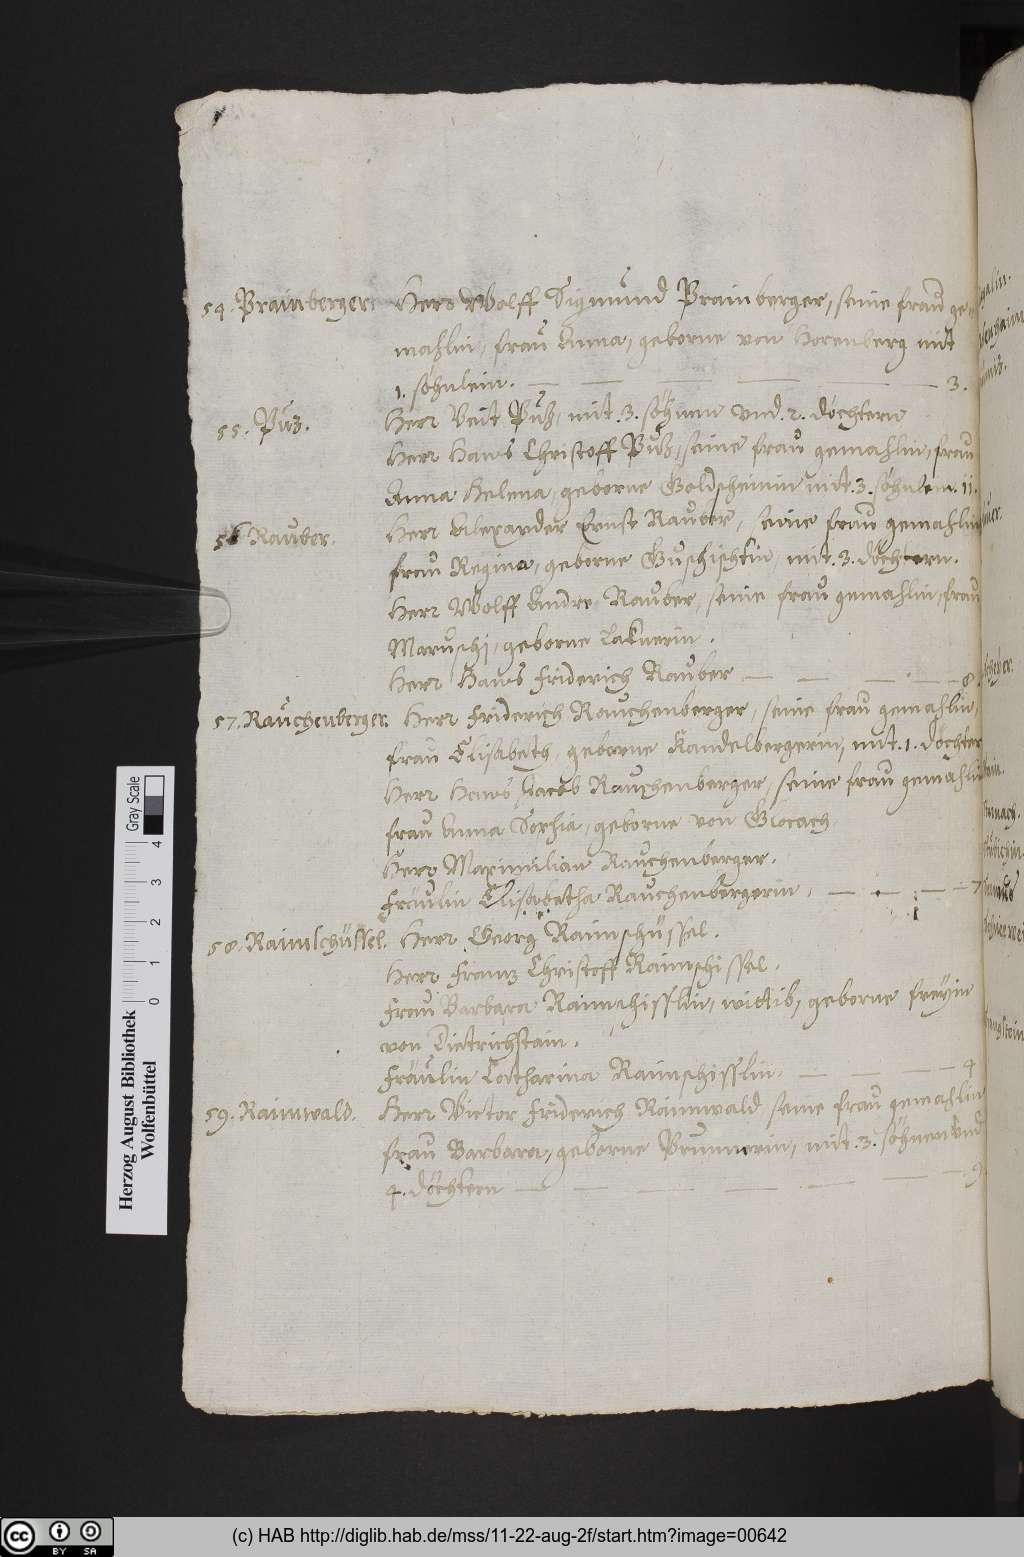 54. Prainberger. Herr Wolff Sigmund Prainberger, seine frau ge-
mahlin, frau Anna, geborne von Horenberg mit
1. söhnlein. — — — — — 3.
55. Püz. Herr Veit Püß, mit .3. söhnen und .2. döchtern
Herr Hans Christoff Püß, seine frau gemahlin, frau
Anna Helena, geborne Goldscheinin mit .3. söhnlein. 11.
56 Rauber. Herr Alexander Ernst Rauber, seine frau gemahlin
frau Regina, geborne mit .3. döchtern.
Herr Wolff Andre Rauber, seine frau gemahlin, frau
Maruschi, geborne
Herr Hans Friderich Rauber — — — — — 8.
57. Rauchenberger. Herr Friderich Rauchenberger, seine frau gemahlin,
frau Elisabeth, geborne Kandelbergerin, mit .1. döchter
Herr Hans Jacob Rauchenberger, seine frau gemahlin
frau Anna Sophia, geborne von
Herr Maximilian Rauchenberger.
Fräulin Elisabetha Rauchenbergerin, — — — — 7
58. Raimschüssel. Herr Georg Raimschüssel.
Herr Frantz Christoff Raimschissel.
Frau Barbara Raimschisslin, wittib, geborne freyin
von Dietrichstain.
Fräulin Catharina Raimschisslin. — — — — 4
59. Rainwald. Herr Victor Friderich Rainwald seine frau gemahlin
frau Barbara, geborne Prunnerin, mit .3. söhnen und
4. döchtern — — — — — — — 9.
Herzog August Bibliothek
Wolfenbüttel
Gray Scale
0 1 2 3 4
cc BY SA
(c) HAB http://diglib.hab.de/mss/11-22-aug-2f/start.htm?image=00642